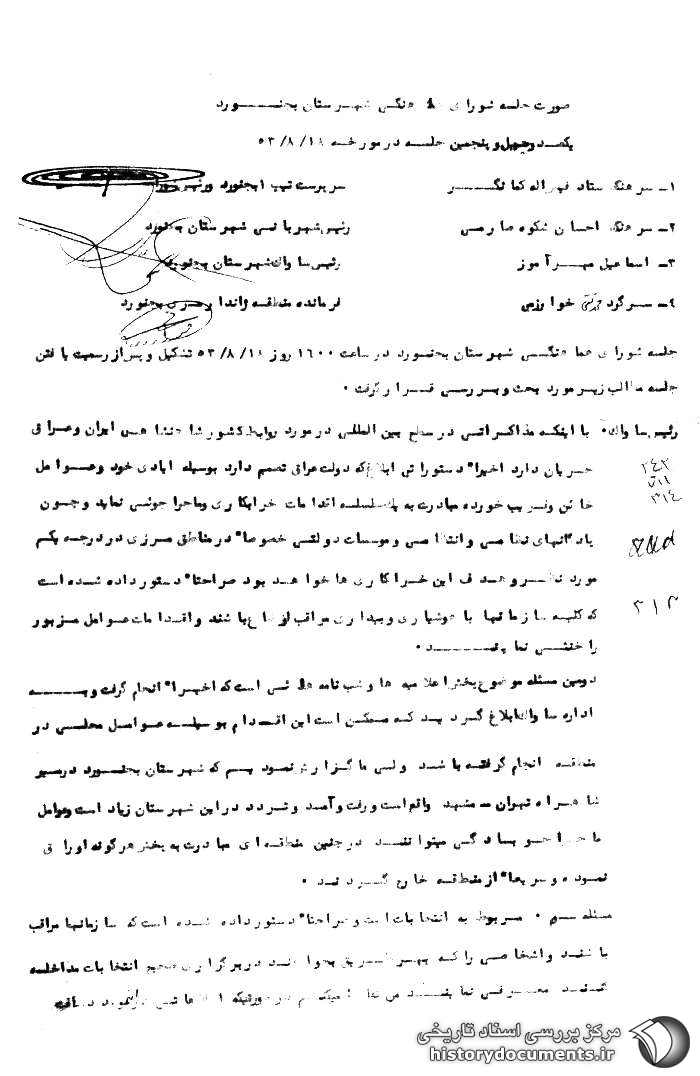 صورت جلسه شورای هماهنگی شهرستان بجنورد
یکصد وچهل و پنجمین جلسه در مورخه ۵۳/۸/۱۸
۱- سرهنگ ستاد قهراله کمانگر سرپرست تیپ ۱بجنورد ورئیس
۲- سرهنگ احسان شکوه صارمی رئیس شهربانی شهرستان بجنورد
۳- اسماعیل مهرآموز رئیس ساواک شهرستان بجنورد
۴- سرگرد خوارزمی فرمانده منطقه ژاندارمری بجنورد
جلسه شورای هماهنگی شهرستان بجنورد در ساعت ۱۶۰۰ روز ۵۳/۸/۱۸ تشکیل و پس از رسمیت یافتن
جلسه مطالب زیر مورد بحث و بررسی قرار گرفت .
رئیس ساواک با اینکه مذاکراتی در سطح بین المللی در مورد روابط کشور شاهنشاهی ایران وعراق
جریان دارد اخیرا" دستوراتی ابلاغ که دولت عراق تصمیم دارد بوسیله ایادی خود وعوامل
خائن وفریب خورده مبادرت به یک سلسله اقدامات خرابکاری وماجرا جوئی نماید وچون
پادگانهای نظامی وانتظامی وموسسات دولتی خصوصا" در مناطق مرزی در درجه یکم
مورد نظر و هدف این خرابکاری ها خواهد بود صراحتا" دستور داده شده است
که کلیه سازمانها با هوشیاری وبیداری مراقب اوضاع باشند واقدامات عوامل مزبور
را خنثی نمایند .
دومین مسئله موضوع پخش اعلامیه ها وشب نامه هائی است که اخیرا" انجام گرفت وبه
اداره ساواک ابلاغ گردید که ممکن است این اقدام بوسیله عوامل محلی در
منطقه انجام گرفته باشد ولی ما گزارش نمودیم که شهرستان بجنورد در مسیر
شاهراه تهران - مشهد واقع است ورفت وآمد وتردد در این شهرستان زیاد است وعوامل
ماجراجو بسادگی میتوانند در چنین منطقه ای مبادرت به پخش هرگونه اوراق
نموده وسریعا" از منطقه خارج گردند .
مسئله سوم . مربوط به انتخابات است وصراحتا" دستور داده شده است که سازمانها مراقب
باشند واشخاصی را که بهر طریق بخواهند در برگزاری صحیح انتخابات مداخله
کنند معرفی نمایند
۲۴۲
۳۱۴
۳۱۲
مرکز بررسی اسناد تاریخی
historydocuments.ir